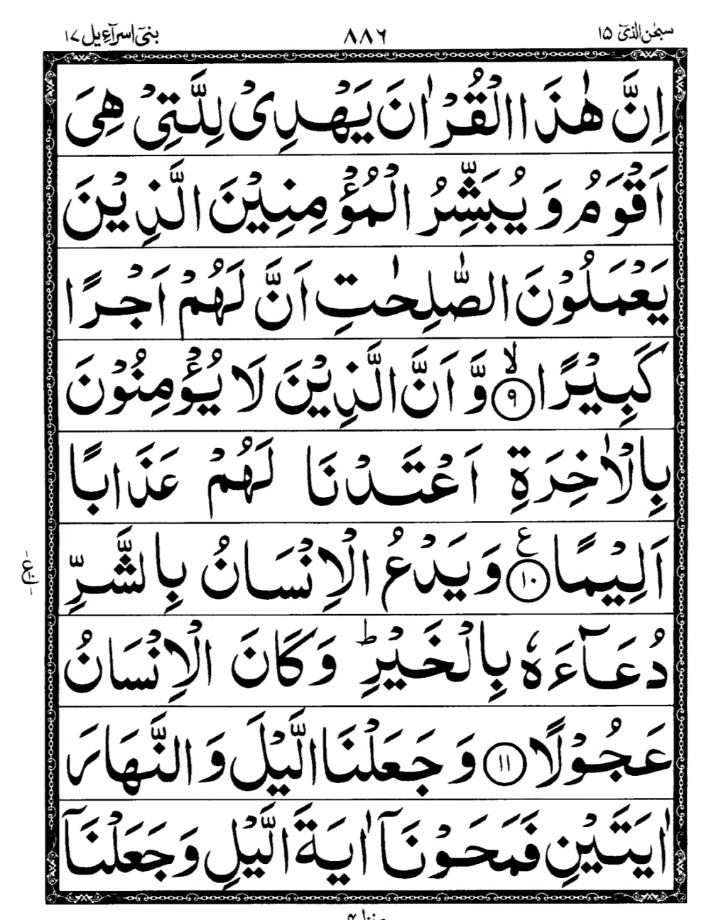 سبحٰن الذیٓ ۱۵ ۸۸۶ بنیٓ اسرآءیل ۱۷
اِنَّ هٰذَا الْقُرْاٰنَ يَهْدِىْ لِلَّتِىْ هِىَ
اَقْوَمُ وَ يُبَشِّرُ الْمُؤْمِنِيْنَ الَّذِيْنَ
يَعْمَلُوْنَ الصّٰلِحٰتِ اَنَّ لَهُمْ اَجْرًا
كَبِيْرًا ۙ‏﴿۹﴾ وَّ اَنَّ الَّذِيْنَ لَا يُؤْمِنُوْنَ
بِالْاٰخِرَةِ اَعْتَدْنَا لَهُمْ عَذَابًا
اَلِيْمًا ﴿۱۰﴾ ع وَ يَدْعُ الْاِنْسَانُ بِالشَّرِّ
دُعَآءَهٗ بِالْخَيْرِ ؕ وَ كَانَ الْاِنْسَانُ
عَجُوْلًا ﴿۱۱﴾ وَ جَعَلْنَا الَّيْلَ وَ النَّهَارَ
اٰيَتَيْنِ فَمَحَوْنَآ اٰيَةَ الَّيْلِ وَ جَعَلْنَآ